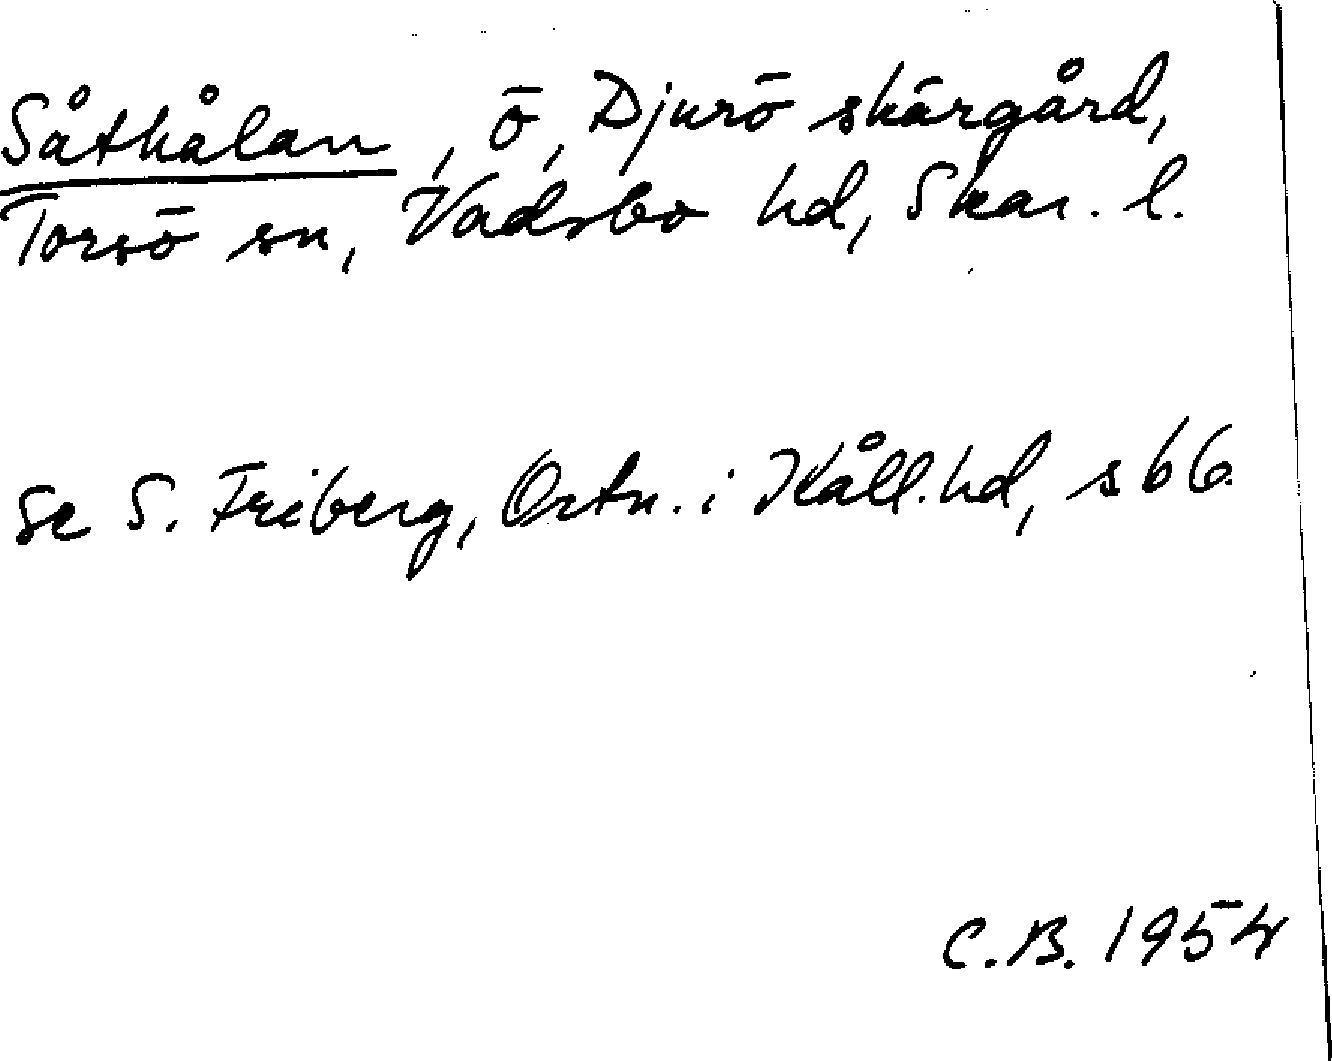 Såthålan, ö, Djurö skärgård,
Torsö sn, Vadsbo hd, Skar. l.
Se S. Friberg, Ortn. i Kåll. hd, s 66.
C.B. 1954